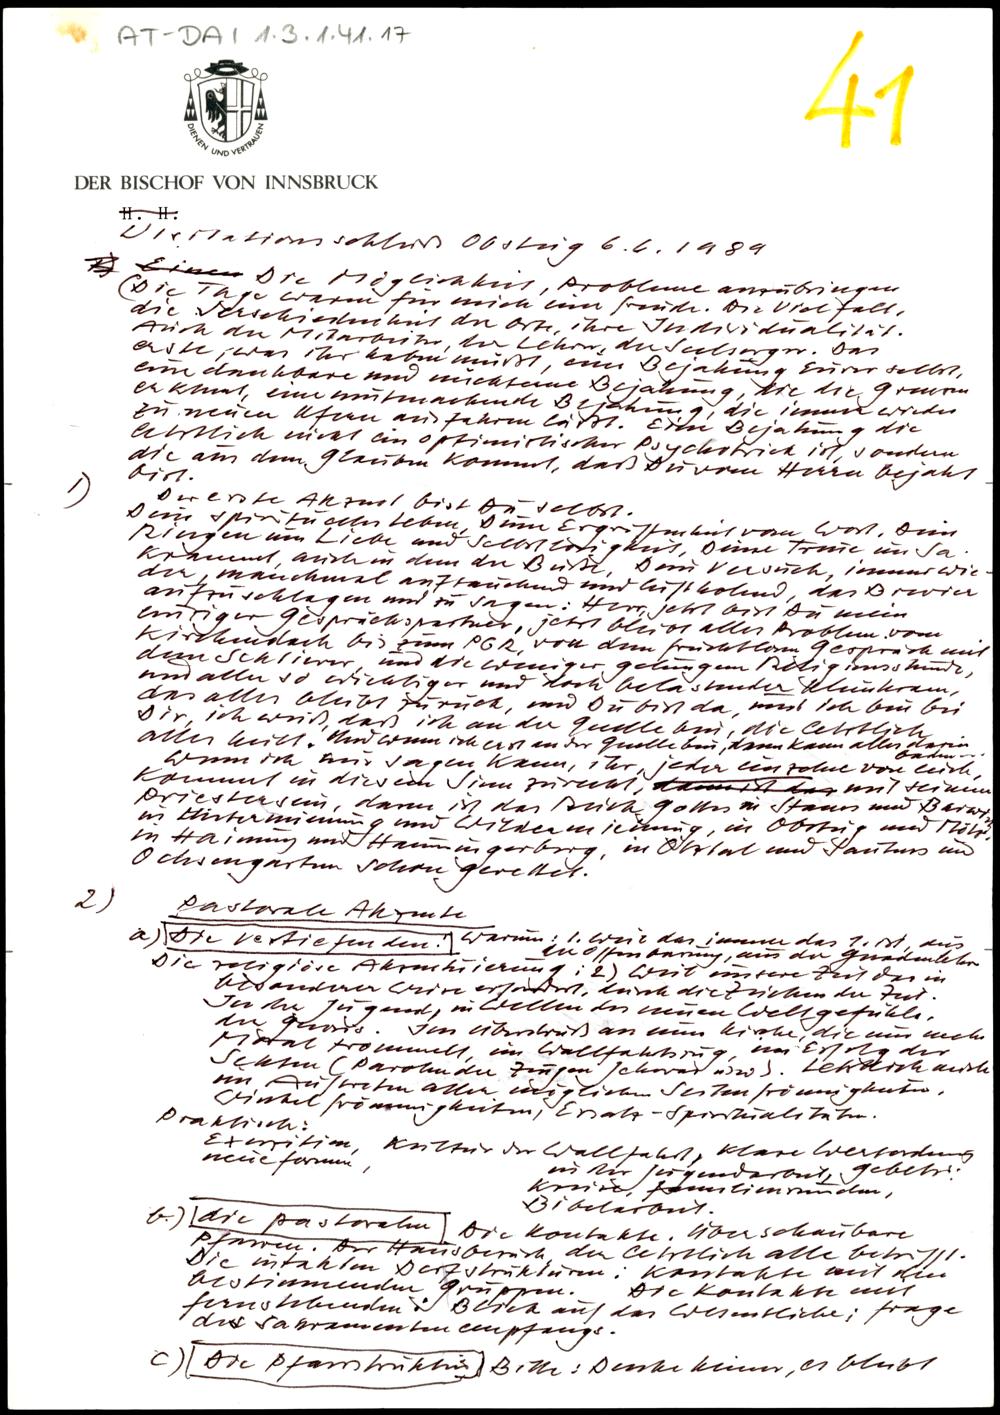 AT-DAI 1.3.1.41.17
41
DIENEN UND VERTRAUEN
DER BISCHOF VON INNSBRUCK
H. H.
Visitationsschluß Obsteig 6.6.1989
1) Einen Die Möglichkeit, Probleme anzubringen
(Die Tage waren für mich eine Freude. Die Vielfalt,
die Verschiedenheit der Orte, ihre Individualität.
Auch der Mitarbeiter, der Lehrer, der Seelsorger. Das
erste, was ihr haben müßt, eine Bejahung Eurer selbst,
eine dankbare und nüchterne Bejahung, die die Grenzen
erkennt, eine mutmachende Bejahung, die immer wieder
zu neuen Ufern ausfahren läßt. Eine Bejahung die
letztlich nicht ein optimistischer Psychotrick ist, sondern
die aus dem Glauben kommt, daß Du vom Herrn bejaht
bist.
1) Der erste Akzent bist Du selbst.
Dein spirituelles Leben, Deine Ergriffenheit vom Wort. Dein
Ringen um Liebe und Selbstlosigkeit, Deine Treue im Sa-
krament, auch in dem der Buße, Dein Versuch, immer wie-
der, manchmal auftauchend und luftholend, das Brevier
aufzuschlagen und zu sagen: Herr, jetzt bist Du mein
einziger Gesprächspartner, jetzt bleibt alles Problem vom
Kirchendach bis zum PGR, von dem fruchtlosen Gespräch mit
dem und die weniger gelungene Religionsstunde,
und aller so wichtiger und doch belastender Kleinkram,
das alles bleibt zurück, und Du bist da, und ich bin bei
Dir, ich weiß, daß ich an der Quelle bin, die letztlich
alles heilt. Und wenn ich erst an der Quelle bin, dann kann alles darin
baden.
Wenn ich mir sagen kann, ihr, jeder einzelne von euch,
kommt in diesem Sinn zurecht, damit ist das mit seinem
Priestersein, dann ist das Reich Gottes in Stams und Barwies
in Untermieming und Wildermieming, in Obsteig und Mötz,
in Haiming und Haimingerberg, in Ötztal und Sautens und
Ochsengarten schon gerettet.
2) Pastorale Akzente
a) Die Vertiefenden: Warum: 1. Weil das immer das 1. ist, aus
der Offenbarung, aus der Gnadenlehre
Die religiöse Akzentuierung; 2) Weil unsere Zeit das in
besonderer Weise erfordert, durch die Zeichen der Zeit.
In der Jugend, in Wellen des neuen Weltgefühls,
der Gurus. Im Überdruß an einer Kirche, die nur mehr
Moral trommelt, im Wallfahrtszug, im Erfolg der
Sekten (Parolen der Zeugen Jehovas usw). Letztlich auch
im Auftreten aller möglichen Sektenfrömmigkeiten,
Winkelfrömmigkeiten, Ersatz-Spiritualitäten.
Praktisch:
Exerzitien, Kultur der Wallfahrt, klare Wertordnung
neue Formen, in der Jugendarbeit, Gebets-
kreise, Familienrunden,
Bibelarbeit.
b.) die pastoralen Die Kontakte. Überschaubare
Pfarren. Der Hausbesuch, der letztlich alle betrifft.
Die intakten Dorfstrukturen: Kontakte mit den
bestimmenden Gruppen. Die Kontakte mit
Fernstehenden: Blick auf das Wesentliche; Frage
des Sakramentenempfangs.
c) Die Pfarrstruktur Bitte: Denke keiner, es bleibt